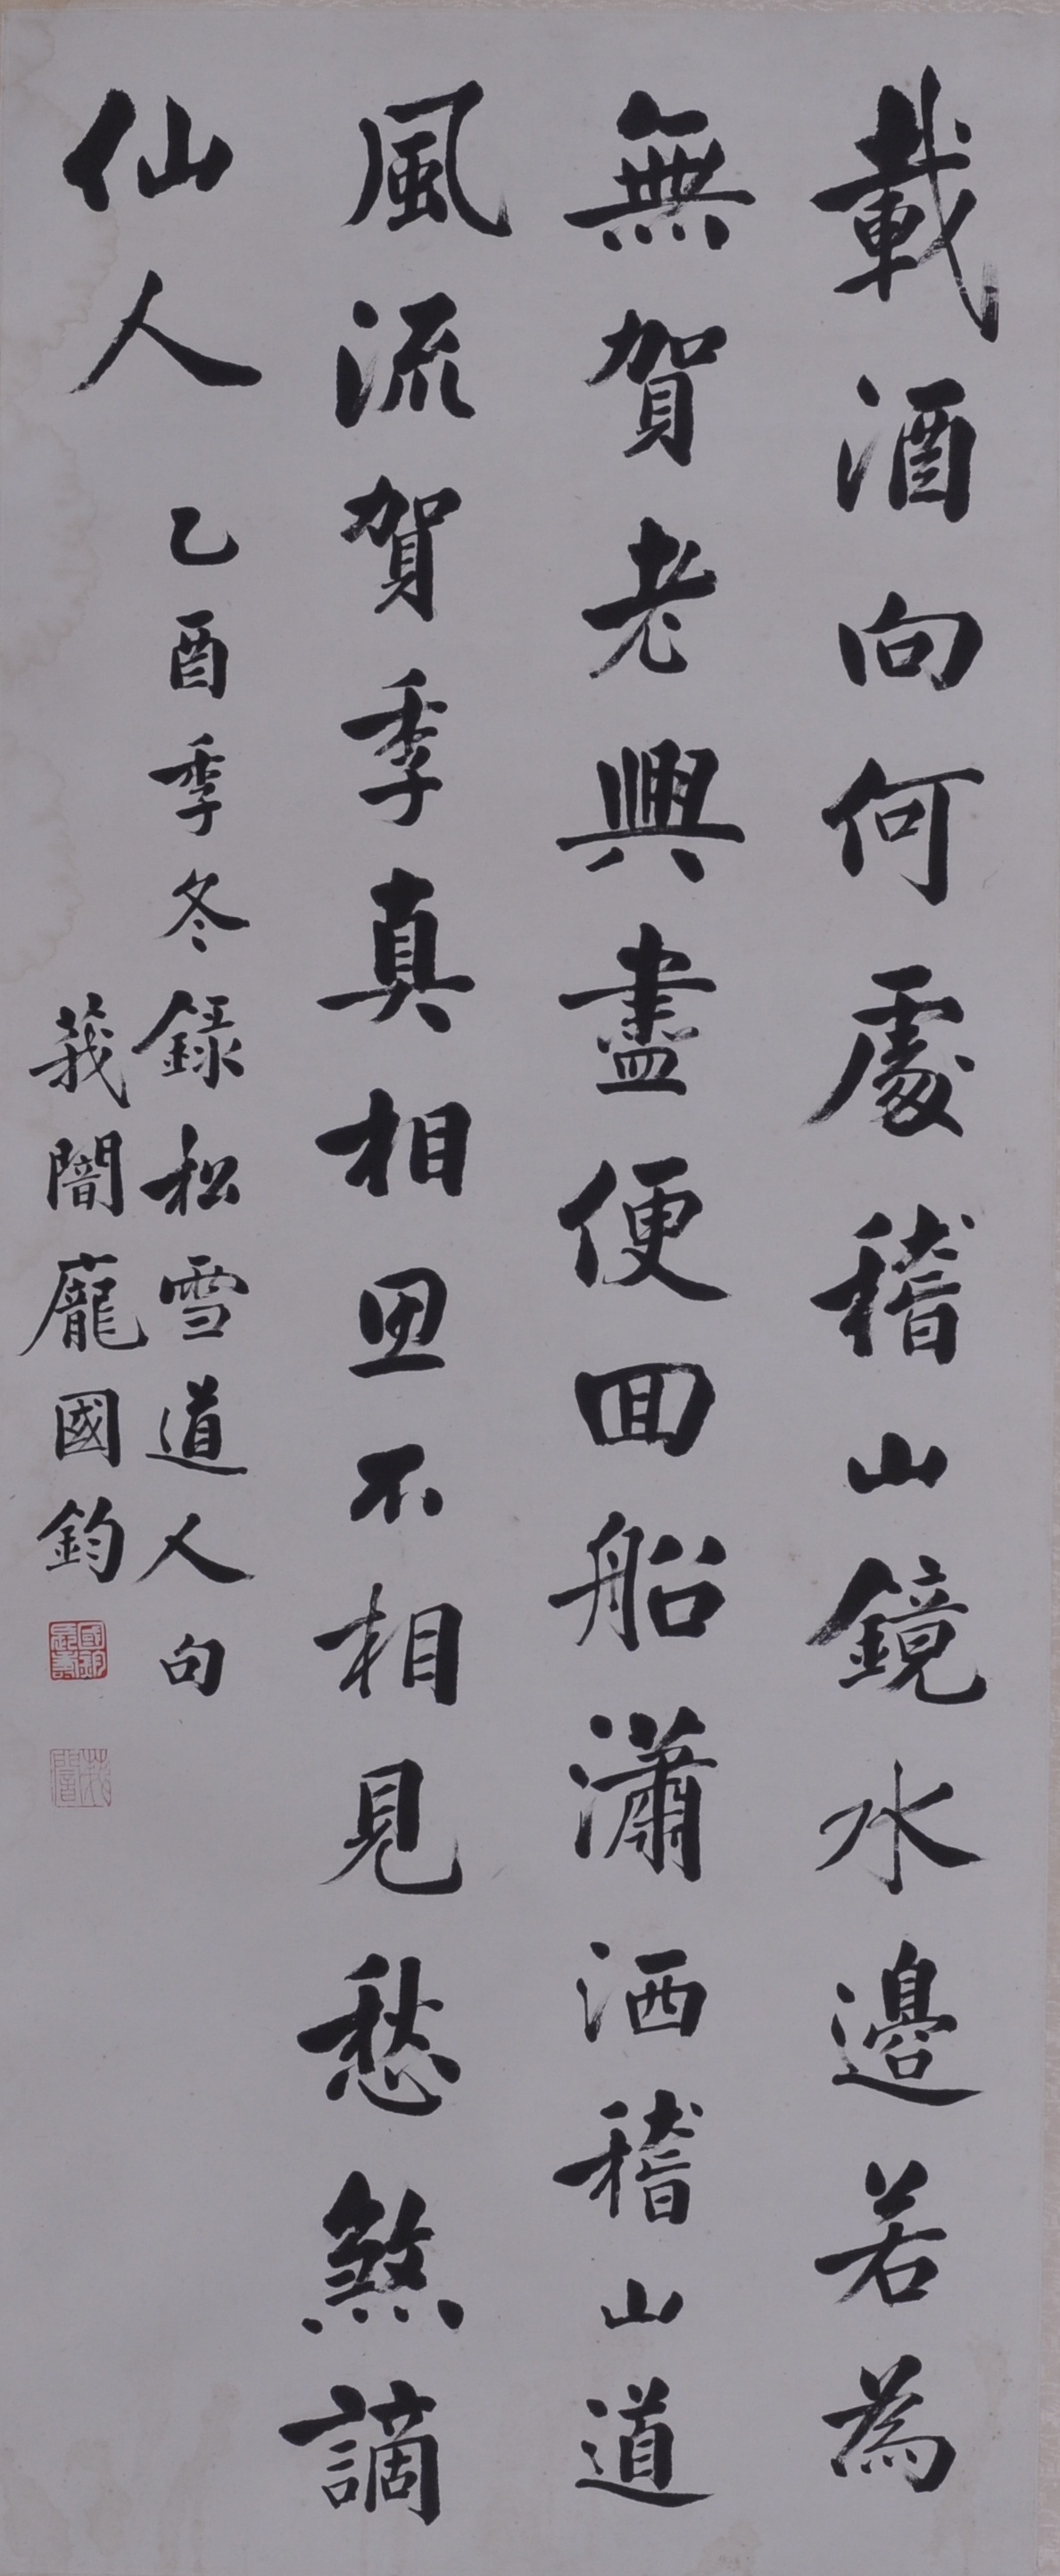 載酒向何處稽山鏡水邊若為
無賀老興盡便回船瀟洒稽山道
風流賀季真相思不相見愁煞謫
仙人
乙酉季冬錄松雪道人句
莪闇龐國鈞